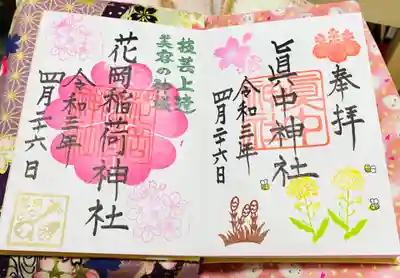 奉拝
眞中神社
令和三年
四月二十六日
技芸上達
美容の神様
花岡稲荷神社
令和三年
四月二十六日